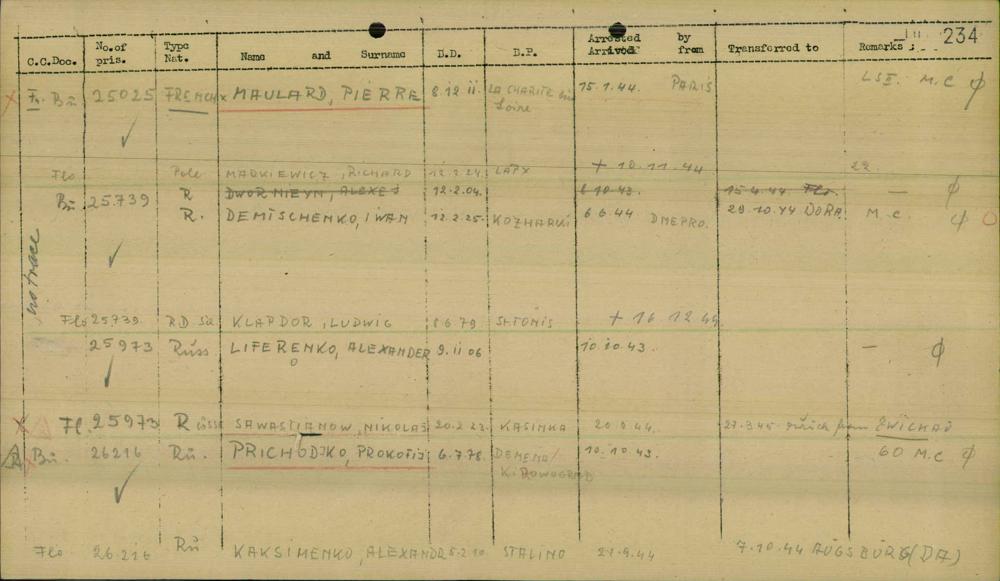 III 234
C.C.Doc. No.of pris. Type Nat. Name and Surname B.D. B.P. Arrested Arrived by from Transferred to Remarks
Fr. Bu 25025 FRENCH MAULARD, PIERRE 8.12 11. LA CHARITE 15.1.44. PARIS M.C ϕ
Loire
Flo Pole MADKIEWICZ, RICHARD 12.2.24. LAPY + 10.11.44 22.
Bu. 25.739 R DWORNIEYN, ALEXEJ 12.2.04. 6 10.43. 15.4.44 Flo. — ϕ
R. DEMISCHENKO, IWAN 12.2.25. KOZHARKI 6 6.44 DNEPRO. 29.10.44 DORA M.C. ϕ
no trace
Flo 25739 RD KLAPDOR, LUDWIG 8.6.79 St.TONIS + 16 12.44
25973 Russ LIFERENKO, ALEXANDER 9.11 06 10.10.43. — ϕ
Fl. 25973 Russ SAWASTIANOW, NIKOLAS 20.2.23. KASINKA 20.9.44. 27.3.45 ZWICKAU
Bu. 26216 Ru. PRICHODJKO, PROKOFIJ 6.7.78. DEMENA/ 10.10.43. 60 M.C ϕ
K.ROWOGRAD
Flo 26.216 Ru KAKSIMENKO, ALEXANDR 5.2.10 STALINO 21.9.44 7.10.44 AUGSBURG (DA)